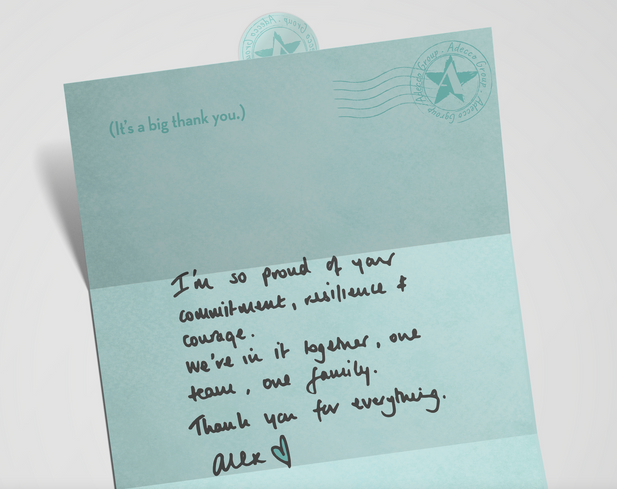 Adecco Group · Adecco Group · Adecco Group
(It's a big thank you.)
I'm so proud of your
commitment, resilience &
courage.
We're in it together, one
team, one family.
Thank you for everything.
Alex